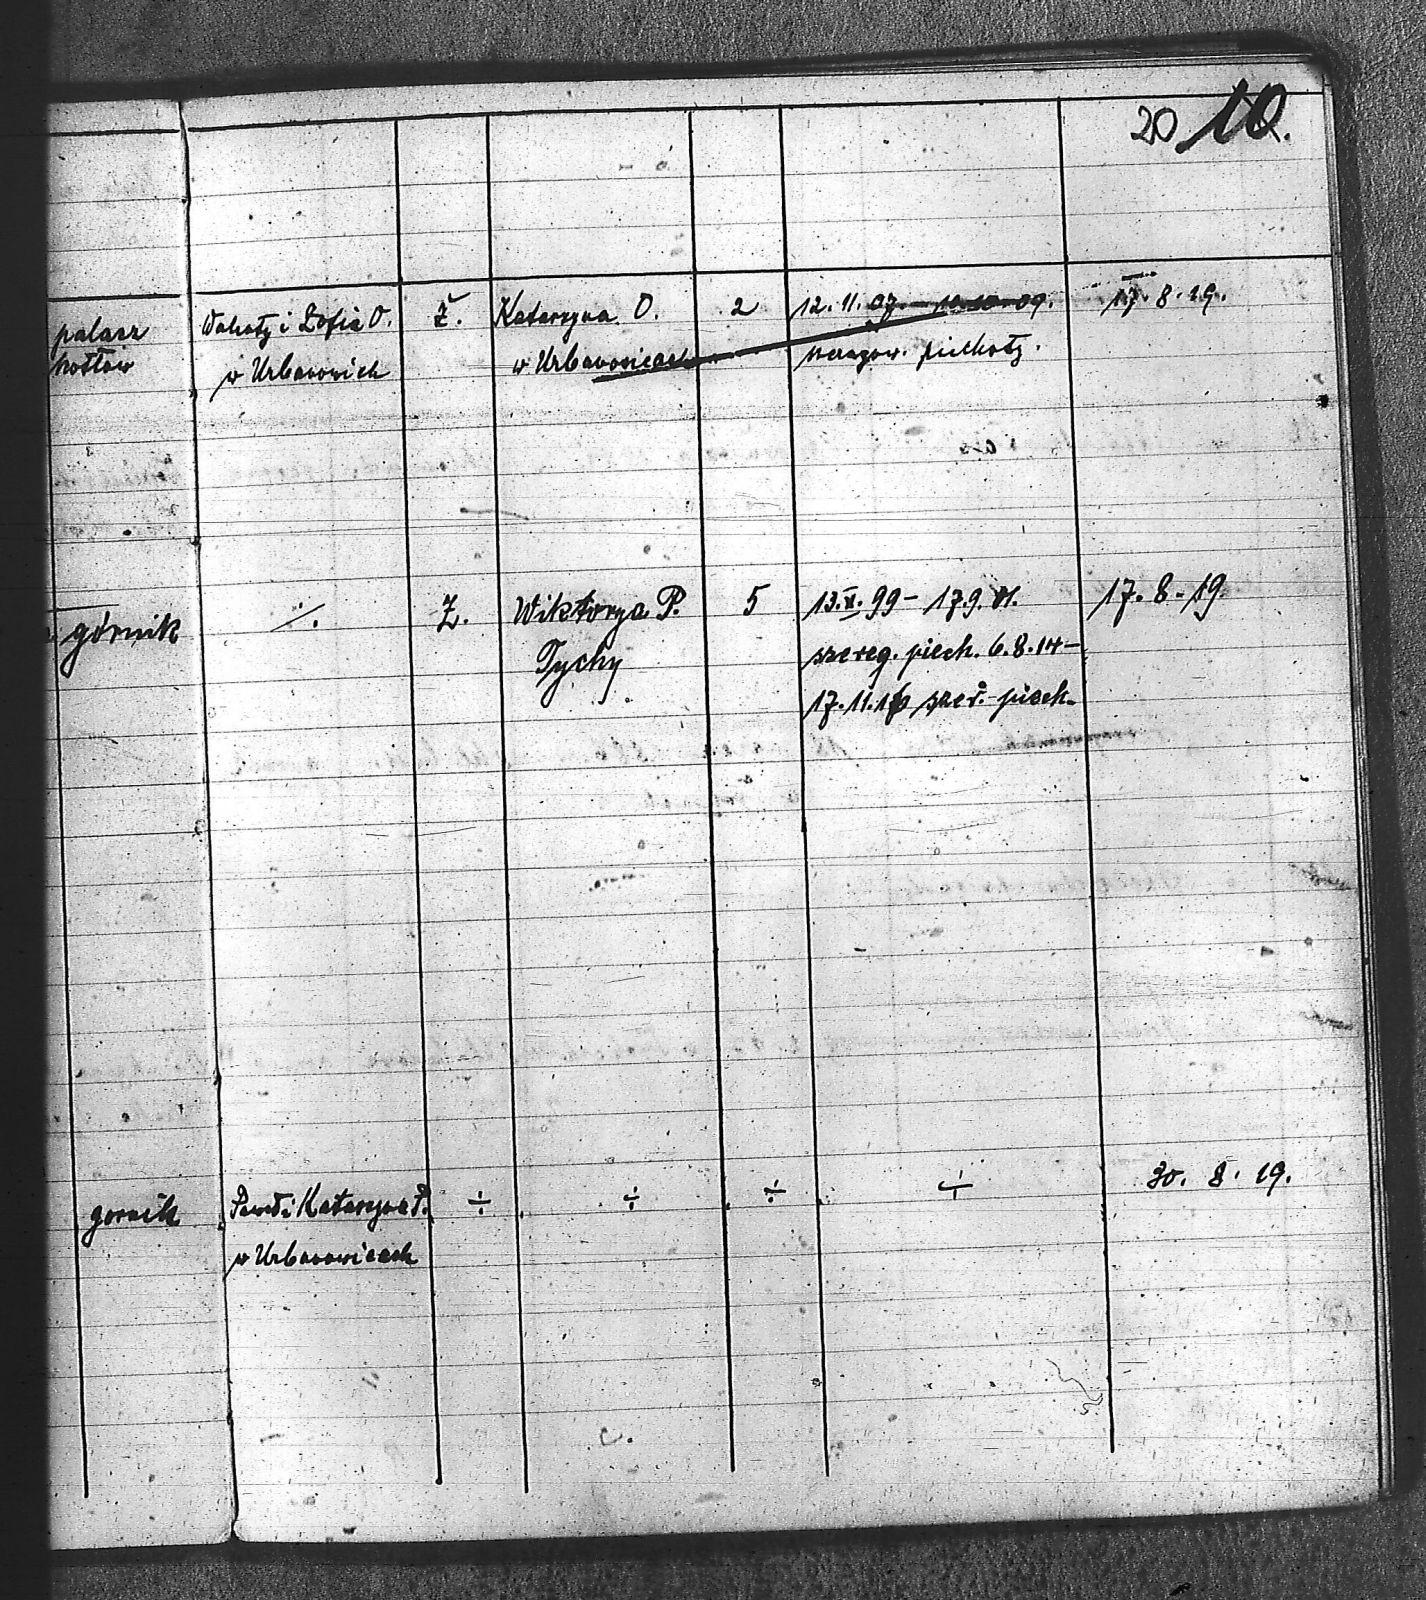 20 10.
palacz
kotłów
i Zofia O.
w Urbanowich
Ż.
Katarzyna O.
w Urbanowicach
2
12. 11. 07. — 09.
piechoty.
17. 8. 19.
górnik
Ż.
Wiktorya P.
Tychy
5
13. XI. 99 – 17.9. 01.
szereg. piech. 6. 8. 14 –
17. 11. 16 szer. piech.
17. 8. 19.
gornik
Paweł i Katarzyna P.
w Urbanowicach
÷
÷
÷
÷
30. 8. 19.